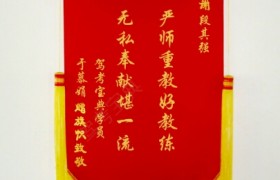 谢段其强
严师重教好教练
无私奉献堪一流
驾考宝典学员
于慕娟
致敬